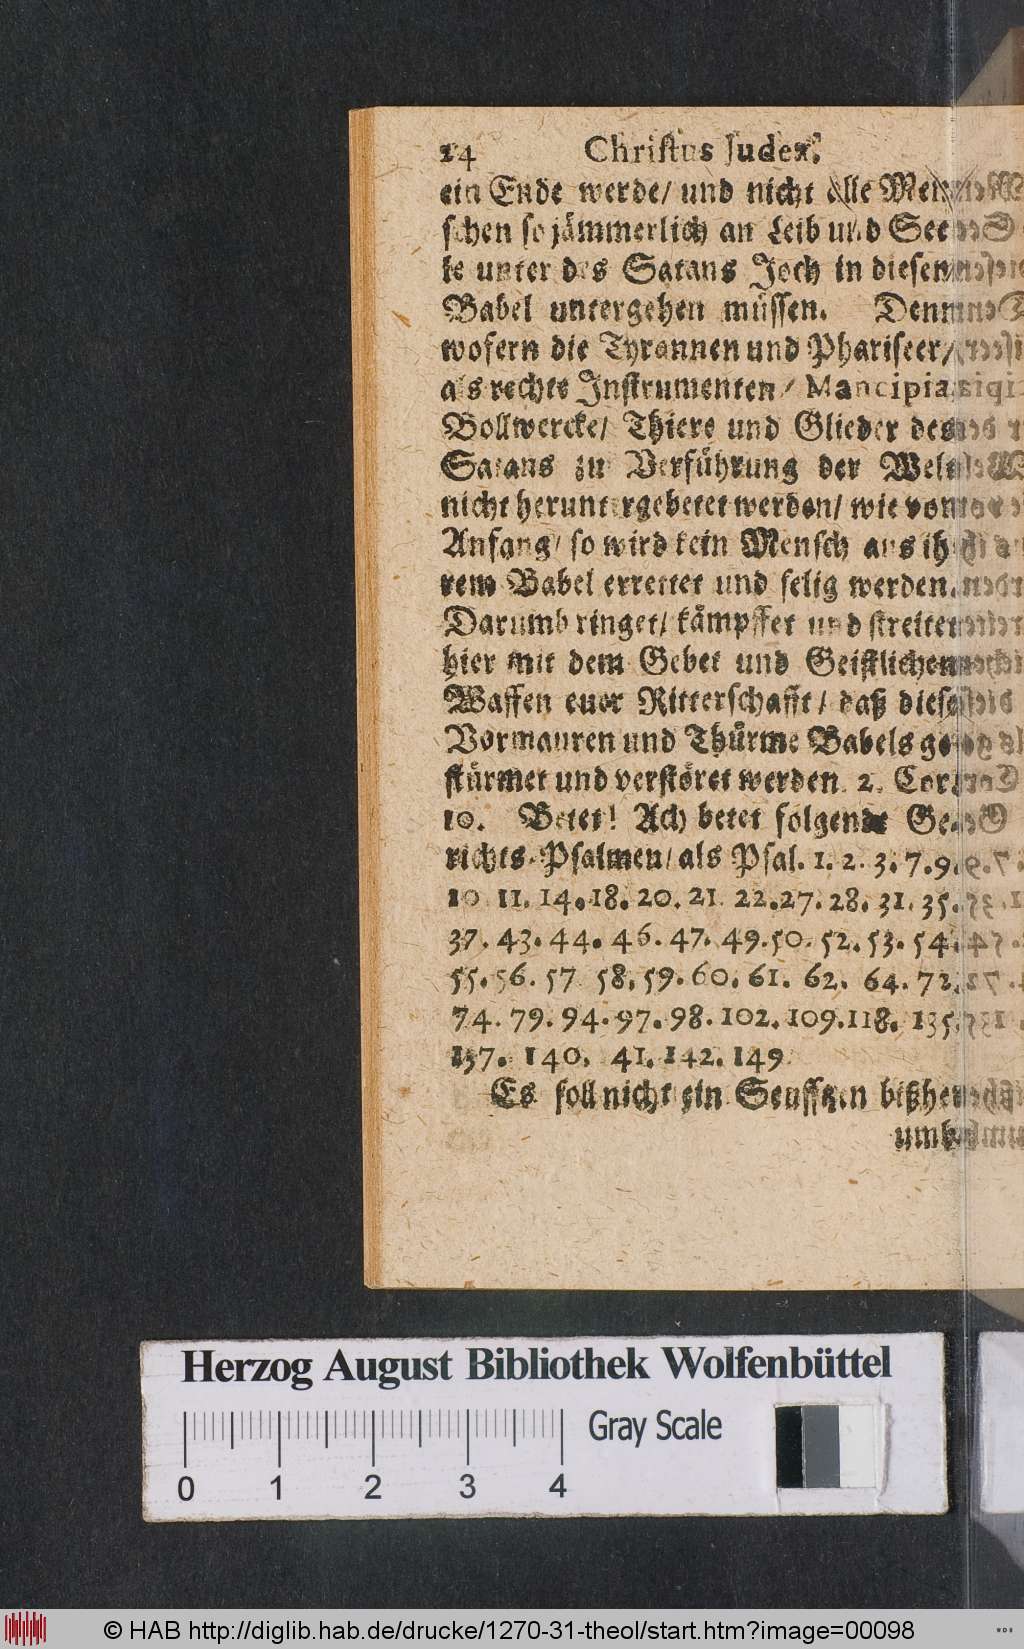 24 Christus Judex.
ein Ende werde/ und nicht alle Men-
schen so jämmerlich an Leib und See-
le unter des Satans Joch in diesem
Babel untergehen müssen. Denn
wofern die Tyrannen und Phariseer/
als rechte Instrumenten/ Mancipia,
Bollwercke/ Thiere und Glieder des
Satans zu Verführung der Welt
nicht heruntergebetet werden/ wie von
Anfang/ so wird kein Mensch aus ih-
rem Babel errettet und selig werden.
Darumb ringet/ kämpffet und streitet
hier mit dem Gebet und Geistlichen
Waffen euer Ritterschafft/ daß diese
Vormauren und Thürme Babels ge-
stürmet und verstöret werden. 2. Cor.
10. Betet! Ach betet folgende Ge-
richts-Psalmen/ als Psal. 1. 2. 3. 7. 9.
10. 11. 14. 18. 20. 21. 22. 27. 28. 31. 35.
37. 43. 44. 46. 47. 49. 50. 52. 53. 54.
55. 56. 57. 58. 59. 60. 61. 62. 64. 72.
74. 79. 94. 97. 98. 102. 109. 118. 135.
137. 140. 41. 142. 149.
Es soll nicht ein Seufftzen bißher
umb-
Herzog August Bibliothek Wolfenbüttel
Gray Scale
0 1 2 3 4
© HAB http://diglib.hab.de/drucke/1270-31-theol/start.htm?image=00098